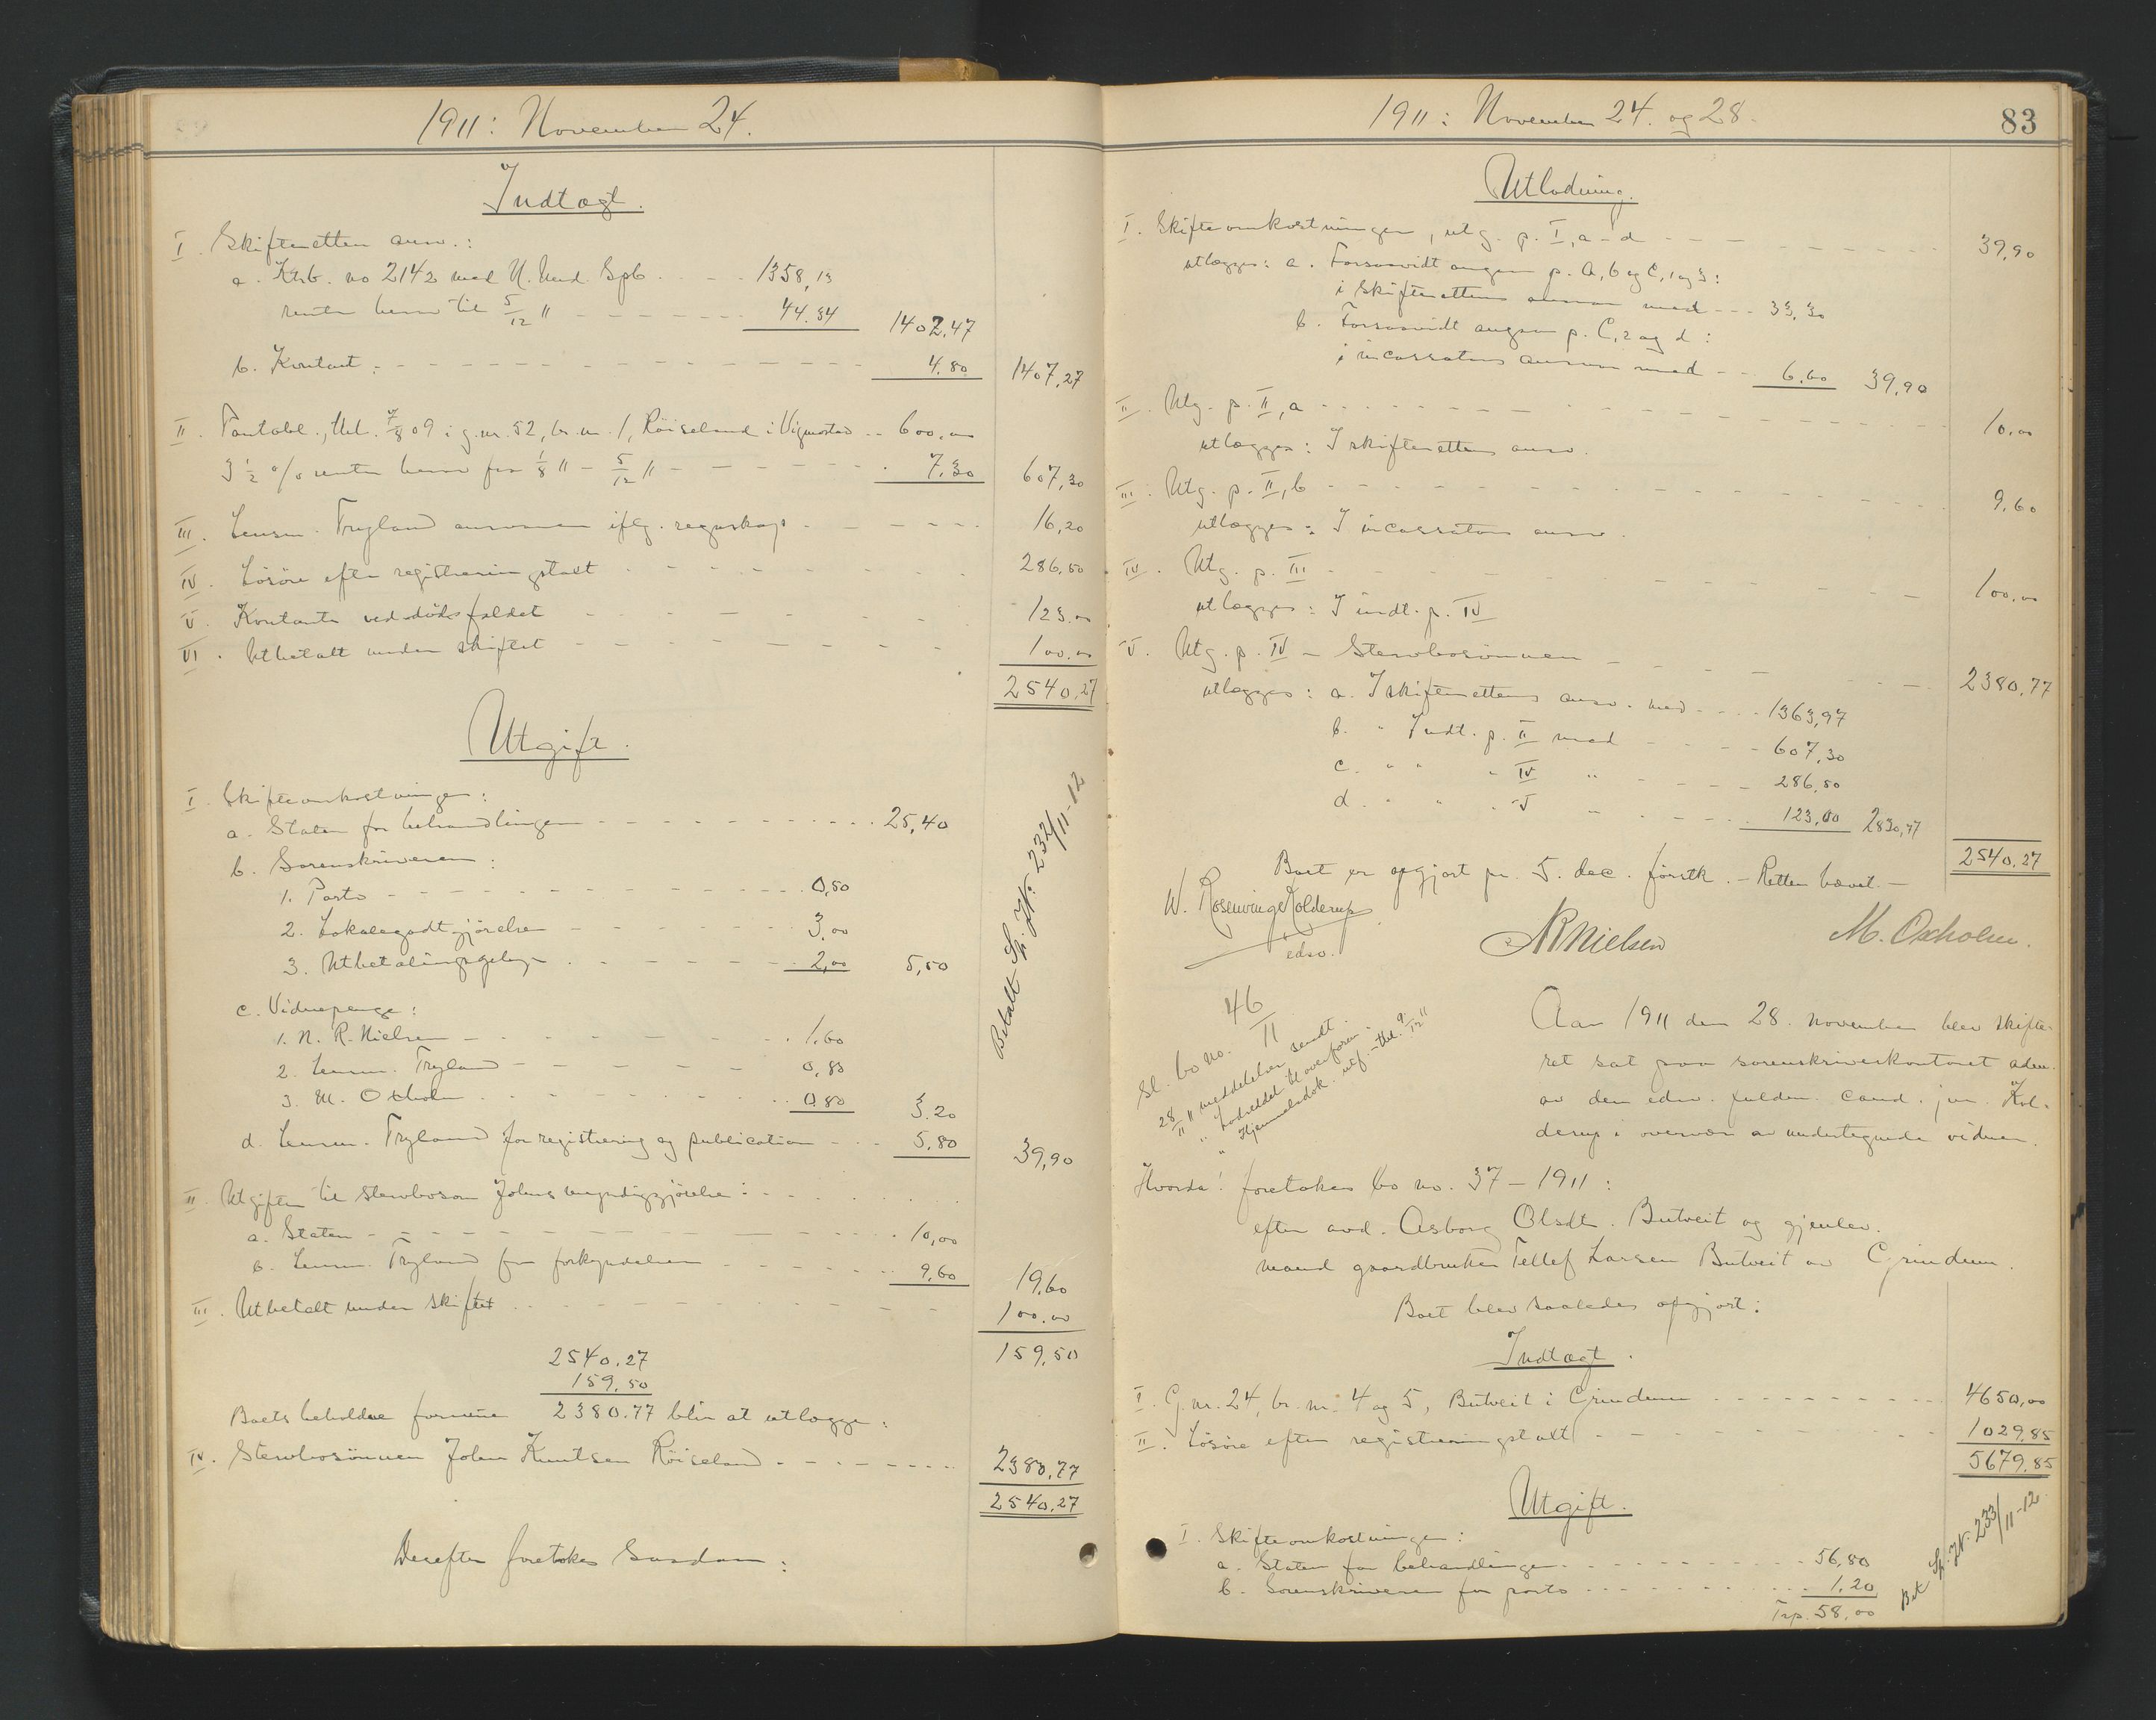 1911: November 24.
Indtægt.
I. Skifteretten ansv.:
a. Ktrb. no 2142 med N. Und. Spb. - - 1358,13
renter herav til 5/12 " - - - - - - 44.34 1402,47
b. Kontant - - - - - - 4.80 1407,27
II. Pantobl., thl. 7/8 09 i g.nr. 52, br.nr. 1, Röiseland i Vigmostad - - 600,00
3 1/2 % renter herav fra 1/8 " - 5/12 " - - - - - 7,30 607,30
III. Lensm. Trygland ansvarer iflg. regnskap - - - - - 16,20
IV. Lösöre efter registreringstakt - - - - - 286,50
V. Kontanter ved dödsfaldet - - - - - 123.00
VI. Utbetalt under skiftet - - - - - 100.00
2540,27
Utgift.
I. Skifteomkostninger:
a. Staten for behandlingen - - - - - 25,40
b. Sorenskriveren:
1. Porto - - - - - 0,50
2. Lokalegodtgjörelse - - - - - 3,00
3. Utbetalingsgebyr - - - - - 2,00 5,50
c. Vidnepenge:
1. N. R. Nielsen - - - - - 1.60
2. Lensm. Trygland - - - - - 0,80
3. M. Oxholm - - - - - 0.80 3.20
d. Lensm. Trygland for registrering og publication - - - 5,80 39,90
II. Utgifter til stervbosön Johns myndiggjörelse: - - - - -
a. Staten - - - - - 10,00
b. Lensm. Trygland for forkyndelsen - - - - - 9,60 19,60
III. Utbetalt under skiftet - - - - - 100.00
159,50
2540.27
159.50
Boets beholdne formue 2380.77 blir at utlægge:
IV. Stervbosönnen John Knutsen Röiseland - - - - - 2380,77
2540,27
Derefter foretokes saadan:
Betalt Sp. JN. 232/11-12
1911: November 24. og 28.
83
Utlodning.
I. Skifteomkostninger, utg. p. I, a-d - - - - - 39,90
utlægges: a. Forsaavidt angaar p. a, b og C, 1 og 3:
i skifterettens ansvar med - - - 33,30
b. Forsaavidt angaar p. C, 2 og d:
i incassators ansvar med - - 6.60 39,90
II. Utg. p. II, a - - - - - 10,00
utlægges: I skifterettens ansv.
III. Utg. p. II, b - - - - - 9,60
utlægges: I incassators ansv.
IV. Utg. p. III - - - - - 100,00
utlægges: I indt. p. IV
V. Utg. p. IV - Stervbosönnen - - - - - 2380,77
utlægges: a. I skifterettens ansv. med - - - - 1363,97
b. " Indt. p. II med - - - - 607,30
c. " " " IV " - - - - 286,50
d. " " " V " - - - - 123,00 2380,77
2540.27
Boet er opgjort pr. 5. dec. förstk. - Retten hævet. -
W. Rosenvinge Kolderup
edsv.
NRNielsen
M. Oxholm.
Sl. bo no. 46/11
28/11 " meddelelser sendt.
" Indmeldt til overform.
" Hjemmelsdok. utf. - thl. 9/12 "
Aar 1911 den 28. november blev skifte-
ret sat paa sorenskriverkontoret adm.
av den edsv. fuldm. cand. jur. Kol-
derup i overvær av undertegnede vidner.
Hvorda! foretokes bo no. 37 - 1911:
efter avd. Asborg Olsdt. Butveit og gjenlev.
mand gaardbruker Tellef Larsen Butveit av Grindum.
Boet blev saaledes opgjort:
Indtægt.
I. G.nr. 24, br. nr. 4 og 5, Butveit i Grindum - - - - - 4650,00
II. Lösöre efter registreringstakt - - - - - 1029.85
5679.85
Utgift.
I. Skifteomkostninger:
a. Staten for behandlingen - - - - - 56,80
b. Sorenskriveren for porto - - - - - 1.20
Trp. 58,00
Bet Sp. JN. 233/11-12